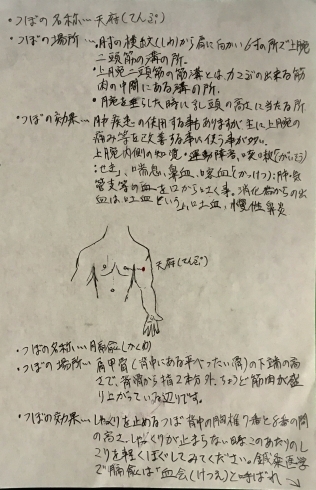 ・つぼの名称…天府(てんぷ)
・つぼの場所…・肘の横紋(しわ)から肩に向かい6寸の所で上腕
二頭筋の溝の所。
・上腕二頭筋の筋溝とは力こぶの出来る筋
肉の中間にある溝の所。
・腕を垂らした時に乳頭の高さに当たる所
・つぼの効果…肺疾患の使用する事もありますが主に上腕の
痛み等を改善する事に使う事が多い。
上腕内側の知覚・運動障害、咳嗽(がいそう)
:せき、喘息、鼻血、喀血(かっけつ):肺・気
管支等の血を口から吐く事。消化器からの出
血は吐血という、吐血、慢性鼻炎
天府(てんぷ)
・つぼの名称…膈兪(かくゆ)
・つぼの場所…肩甲骨(背中にある平べったい骨)の下端の高
さで、背骨から指2本分外、ちょうど筋肉が盛
り上がっている辺りです。
・つぼの効果…しゃっくりを止めるつぼ 背中の胸椎7番と8番の間
の高さ、しゃっくりが止まらない時このあたりのし
こりを軽くほぐしてみてください。鍼灸医学
で膈兪は"血会(けつえ)と呼ばれ